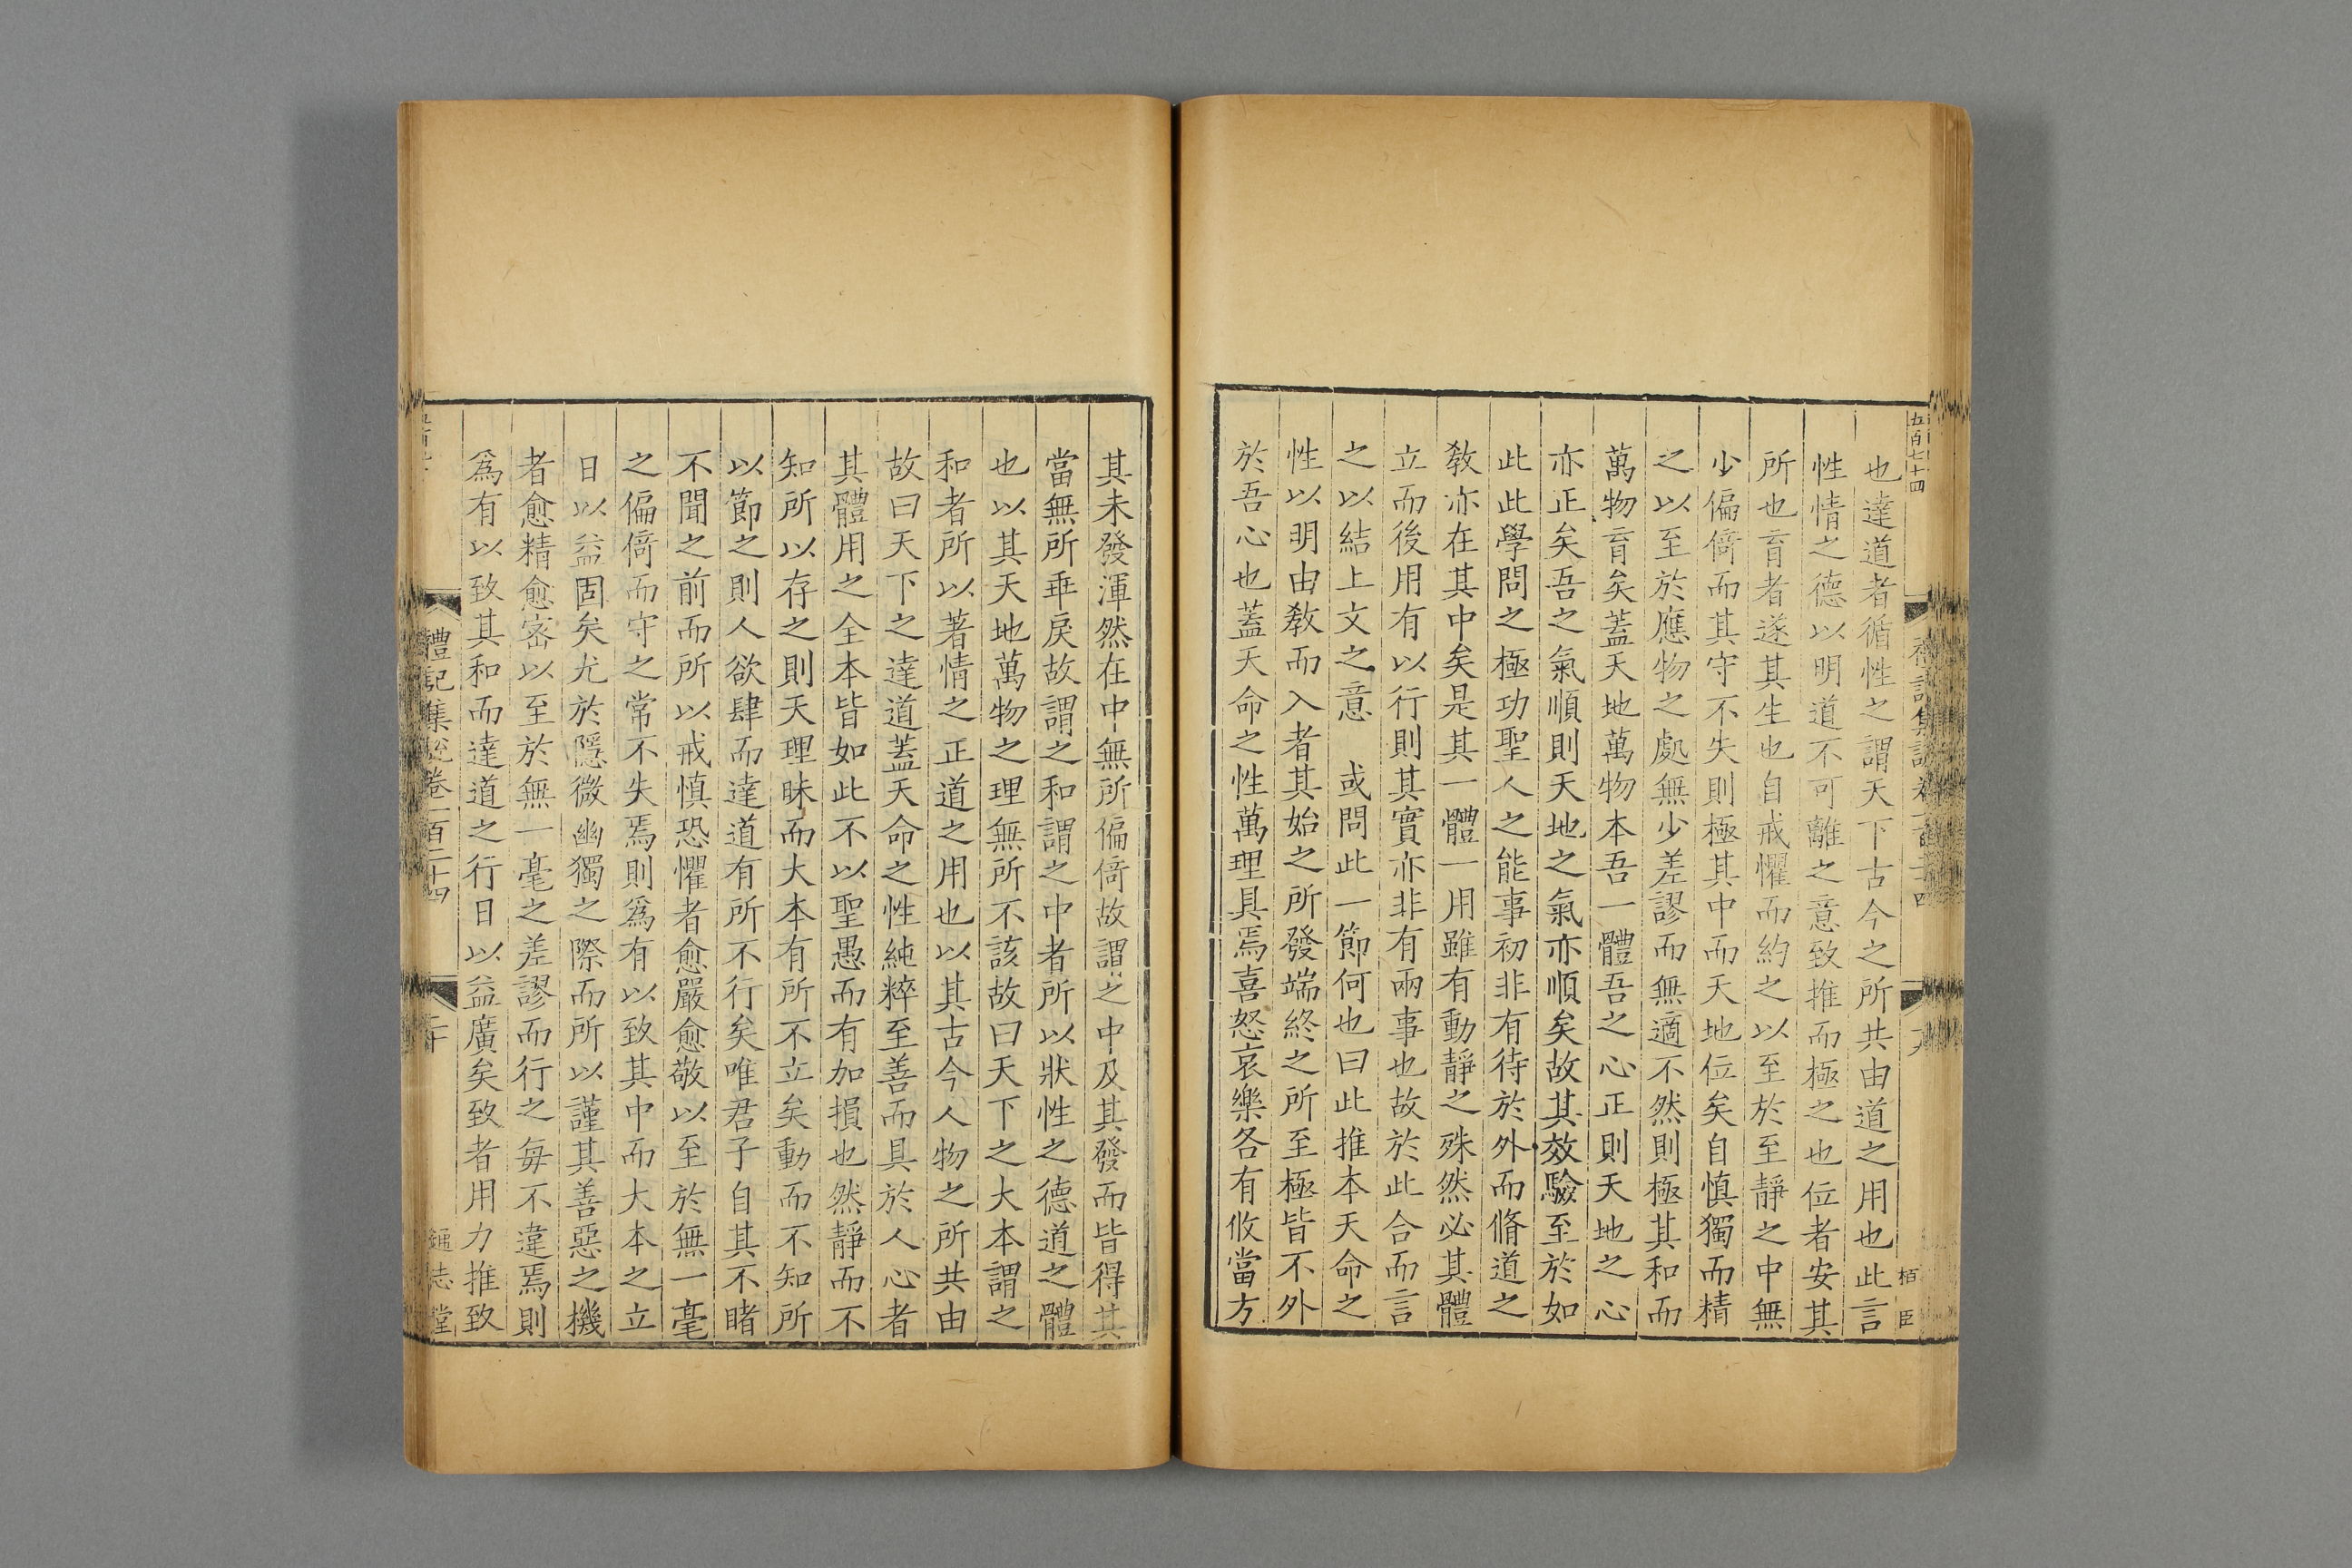 五百七十四
禮記集說卷一百二十四
十九
栢臣
也達道者循性之謂天下古今之所共由道之用也此言
性情之德以明道不可離之意致推而極之也位者安其
所也育者遂其生也自戒懼而約之以至於至靜之中無
少偏倚而其守不失則極其中而天地位矣自慎獨而精
之以至於應物之處無少差謬而無適不然則極其和而
萬物育矣蓋天地萬物本吾一體吾之心正則天地之心
亦正矣吾之氣順則天地之氣亦順矣故其效驗至於如
此此學問之極功聖人之能事初非有待於外而脩道之
教亦在其中矣是其一體一用雖有動靜之殊然必其體
立而後用有以行則其實亦非有兩事也故於此合而言
之以結上文之意　或問此一節何也曰此推本天命之
性以明由教而入者其始之所發端終之所至極皆不外
於吾心也蓋天命之性萬理具焉喜怒哀樂各有攸當方
其未發渾然在中無所偏倚故謂之中及其發而皆得其
當無所乖戾故謂之和謂之中者所以狀性之德道之體
也以其天地萬物之理無所不該故曰天下之大本謂之
和者所以著情之正道之用也以其古今人物之所共由
故曰天下之達道蓋天命之性純粹至善而具於人心者
其體用之全本皆如此不以聖愚而有加損也然靜而不
知所以存之則天理昧而大本有所不立矣動而不知所
以節之則人欲肆而達道有所不行矣唯君子自其不睹
不聞之前而所以戒慎恐懼者愈嚴愈敬以至於無一毫
之偏倚而守之常不失焉則爲有以致其中而大本之立
日以益固矣尤於隱微幽獨之際而所以謹其善惡之機
者愈精愈密以至於無一毫之差謬而行之每不違焉則
爲有以致其和而達道之行日以益廣矣致者用力推致
禮記集說卷一百二十四
二十
通志堂